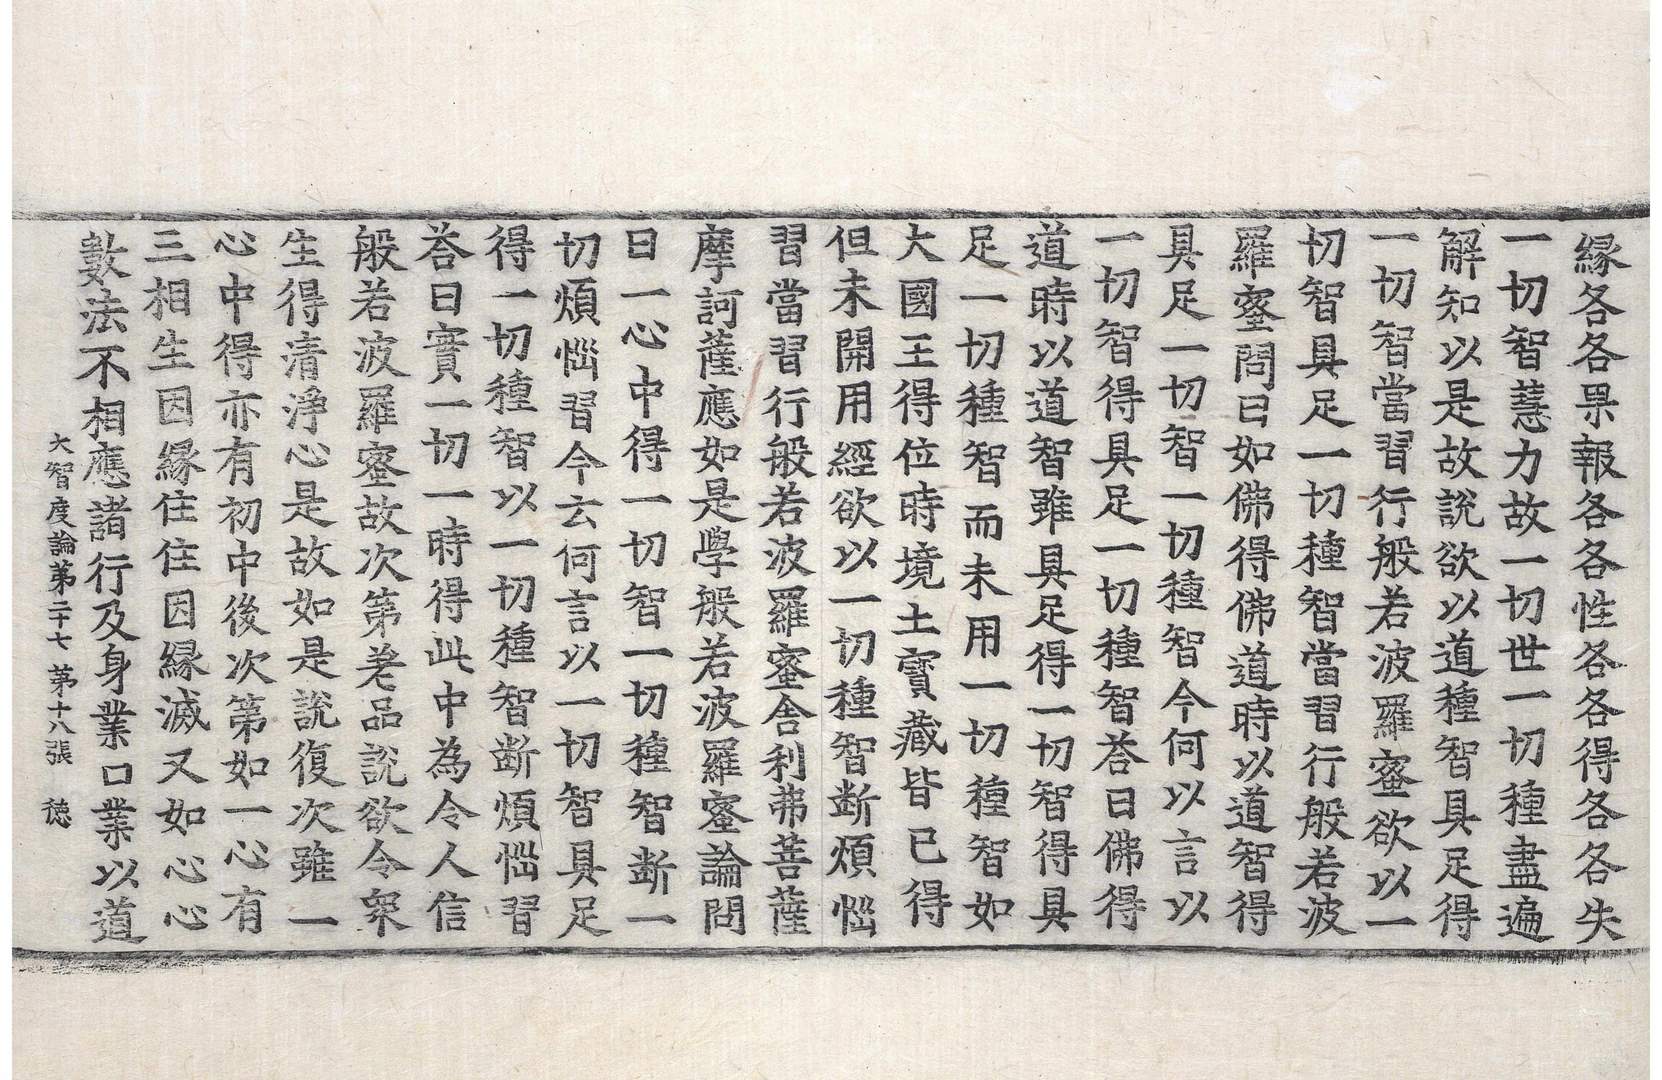 緣各各果報各各性各各得各各失
一切智慧力故一切世一切種盡遍
解知以是故說欲以道種智具足得
一切智當習行般若波羅蜜欲以一
切智具足一切種智當習行般若波
羅蜜問曰如佛得佛道時以道智得
具足一切智一切種智今何以言以
一切智得具足一切種智荅曰佛得
道時以道智雖具足得一切智得具
足一切種智而未用一切種智如
大國王得位時境土寶藏皆已得
但未開用經欲以一切種智断煩惱
習當習行般若波羅蜜舍利弗菩薩
摩訶薩應如是學般若波羅蜜論問
曰一心中得一切智一切種智断一
切煩惱習今云何言以一切智具足
得一切種智以一切種智断煩惱習
荅曰實一切一時得此中為令人信
般若波羅蜜故次第差品說欲令衆
生得清淨心是故如是說復次雖一
心中得亦有初中後次第如一心有
三相生因緣住住因緣滅又如心心
數法不相應諸行及身業口業以道
大智度論第二十七 第十八張 徳